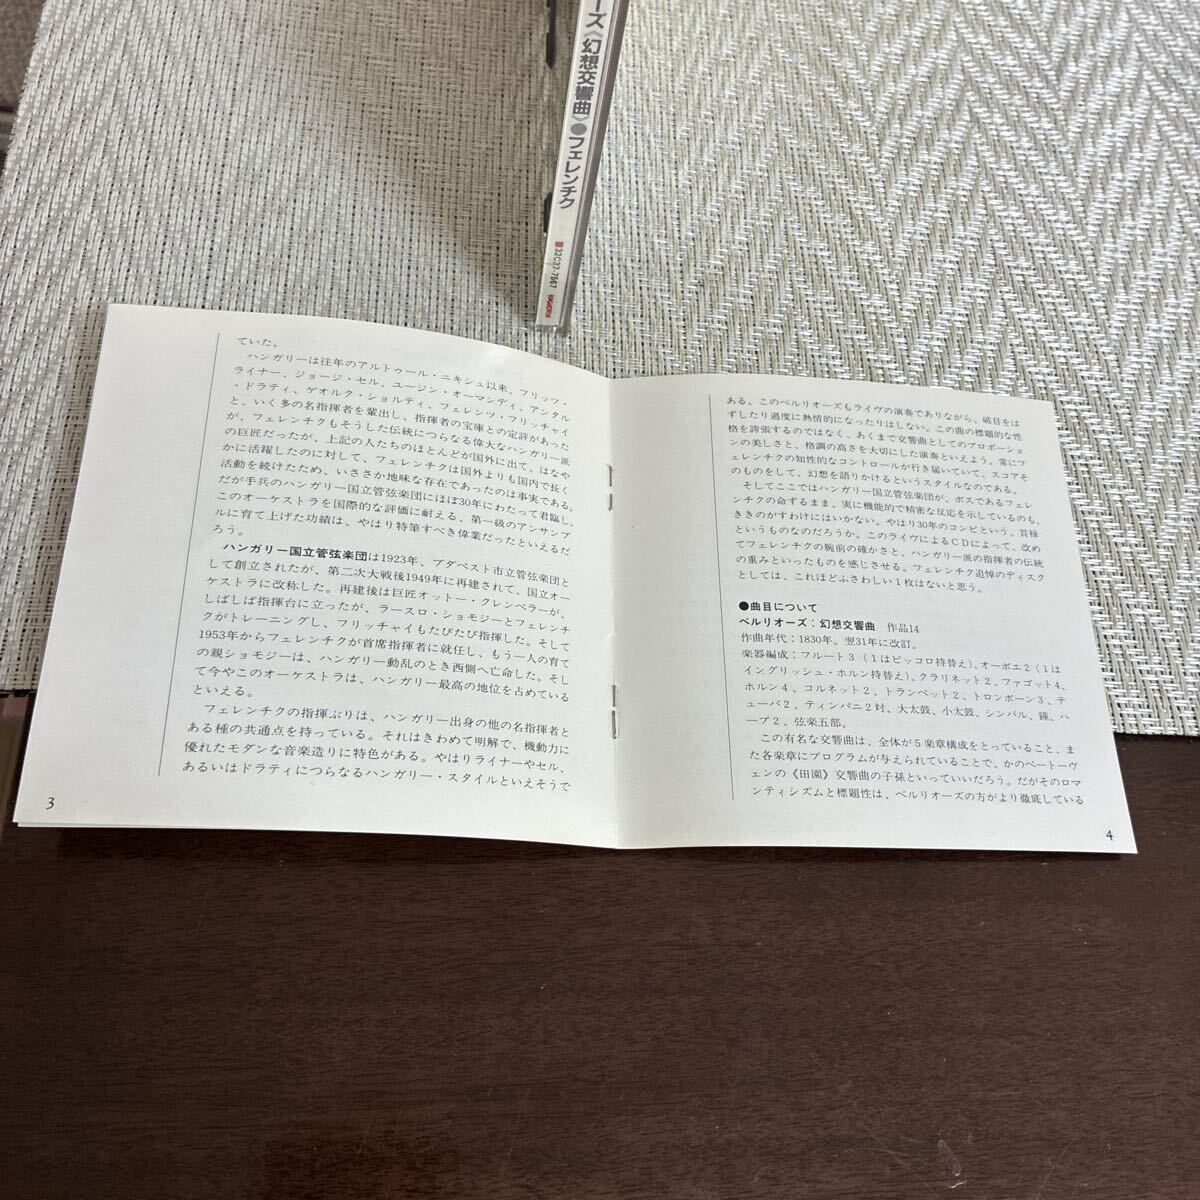 ーズ《幻想交響曲》●フェレンチク
32C37-7567
ていた。
ハンガリーは往年のアルトゥール・ニキシュ以来、フリッツ・
ライナー、ジョージ・セル、ユージン・オーマンディ、アンタル
・ドラティ、ゲオルク・ショルティ、フェレンツ・フリッチャイ
と、いく多の名指揮者を輩出し、指揮者の宝庫との定評があった
が、フェレンチクもそうした伝統につらなる偉大なハンガリー派
の巨匠だったが、上記の人たちのほとんどが国外に出て、はなや
かに活躍したのに対して、フェレンチクは国外よりも国内で長く
活動を続けたため、いささか地味な存在であったのは事実である。
だが手兵のハンガリー国立管弦楽団にほぼ30年にわたって君臨し、
このオーケストラを国際的な評価に耐える、第一級のアンサンブ
ルに育て上げた功績は、やはり特筆すべき偉業だったといえるだ
ろう。
ハンガリー国立管弦楽団は1923年、ブダペスト市立管弦楽団と
して創立されたが、第二次大戦後1949年に再建されて、国立オー
ケストラに改称した。再建後は巨匠オットー・クレンペラーが、
しばしば指揮台に立ったが、ラースロ・ショモジーとフェレンチ
クがトレーニングし、フリッチャイもたびたび指揮した。そして
1953年からフェレンチクが首席指揮者に就任し、もう一人の育て
の親ショモジーは、ハンガリー動乱のとき西側へ亡命した。そし
て今やこのオーケストラは、ハンガリー最高の地位を占めている
といえる。
フェレンチクの指揮ぶりは、ハンガリー出身の他の名指揮者と
ある種の共通点を持っている。それはきわめて明解で、機動力に
優れたモダンな音楽造りに特色がある。やはりライナーやセル、
あるいはドラティにつらなるハンガリー・スタイルといえそうで
3
ある。このベルリオーズもライヴの演奏でありながら、破目をは
ずしたり過度に熱情的になったりはしない。この曲の標題的な性
格を誇張するのではなく、あくまで交響曲としてのプロポーショ
ンの美しさと、格調の高さを大切にした演奏といえよう。常にフ
ェレンチクの知性的なコントロールが行き届いていて、スコアそ
のものをして、幻想を語りかけるというスタイルなのである。
そしてここではハンガリー国立管弦楽団が、ボスであるフェレ
ンチクの命ずるまま、実に機能的で精密な反応を示しているのも、
ききのがすわけにはいかない。やはり30年のコンビという、貫禄
というものなのだろうか。このライヴによるCDによって、改め
てフェレンチクの腕前の確かさと、ハンガリー派の指揮者の伝統
の重みといったものを感じさせる。フェレンチク追悼のディスク
としては、これほどふさわしい1枚はないと思う。
●曲目について
ベルリオーズ：幻想交響曲 作品14
作曲年代：1830年。翌31年に改訂。
楽器編成：フルート3（1はピッコロ持替え）、オーボエ2（1は
イングリッシュ・ホルン持替え）、クラリネット2、ファゴット4、
ホルン4、コルネット2、トランペット2、トロンボーン3、テ
ューバ2、ティンパニ2対、大太鼓、小太鼓、シンバル、鐘、ハ
ープ2、弦楽五部。
この有名な交響曲は、全体が5楽章構成をとっていること、ま
た各楽章にプログラムが与えられていることで、かのベートーヴ
ェンの《田園》交響曲の子孫といっていいだろう。だがそのロマ
ンティシズムと標題性は、ベルリオーズの方がより徹底している
4